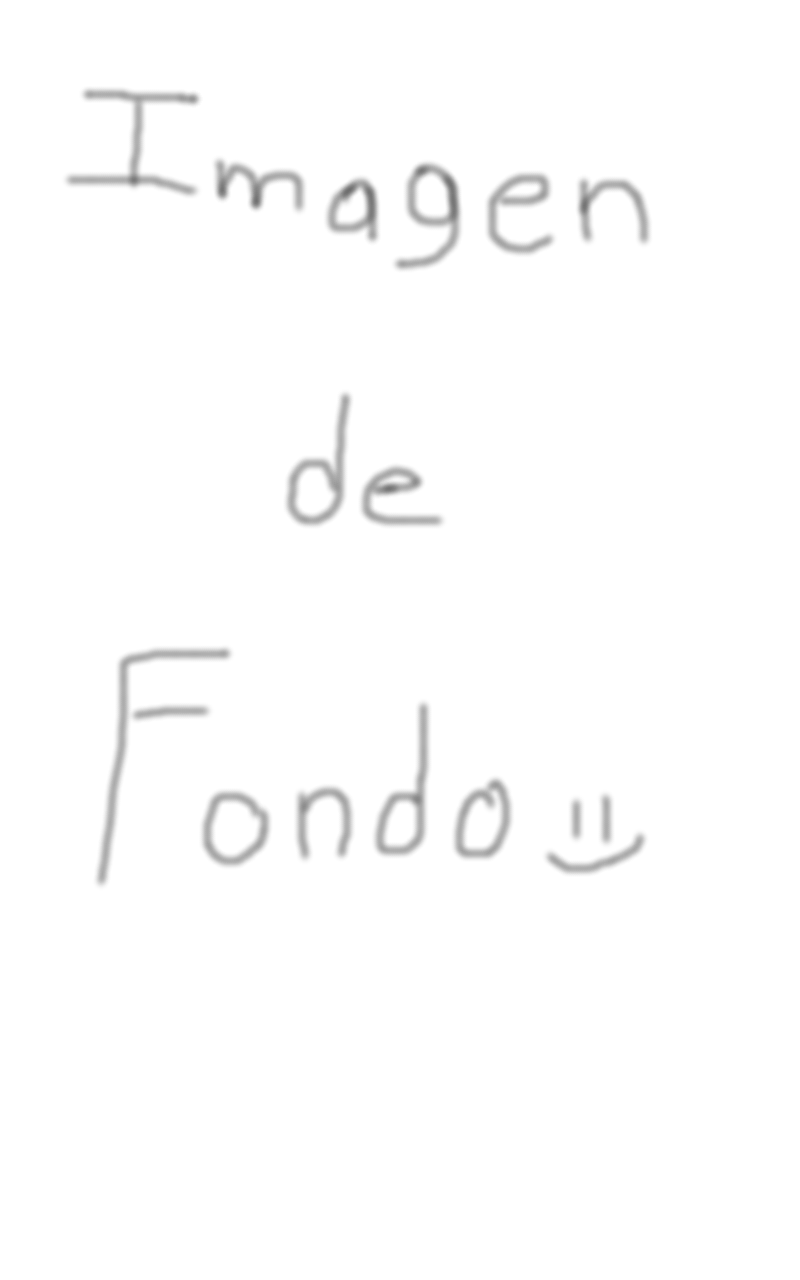 Imagen
de
Fondo